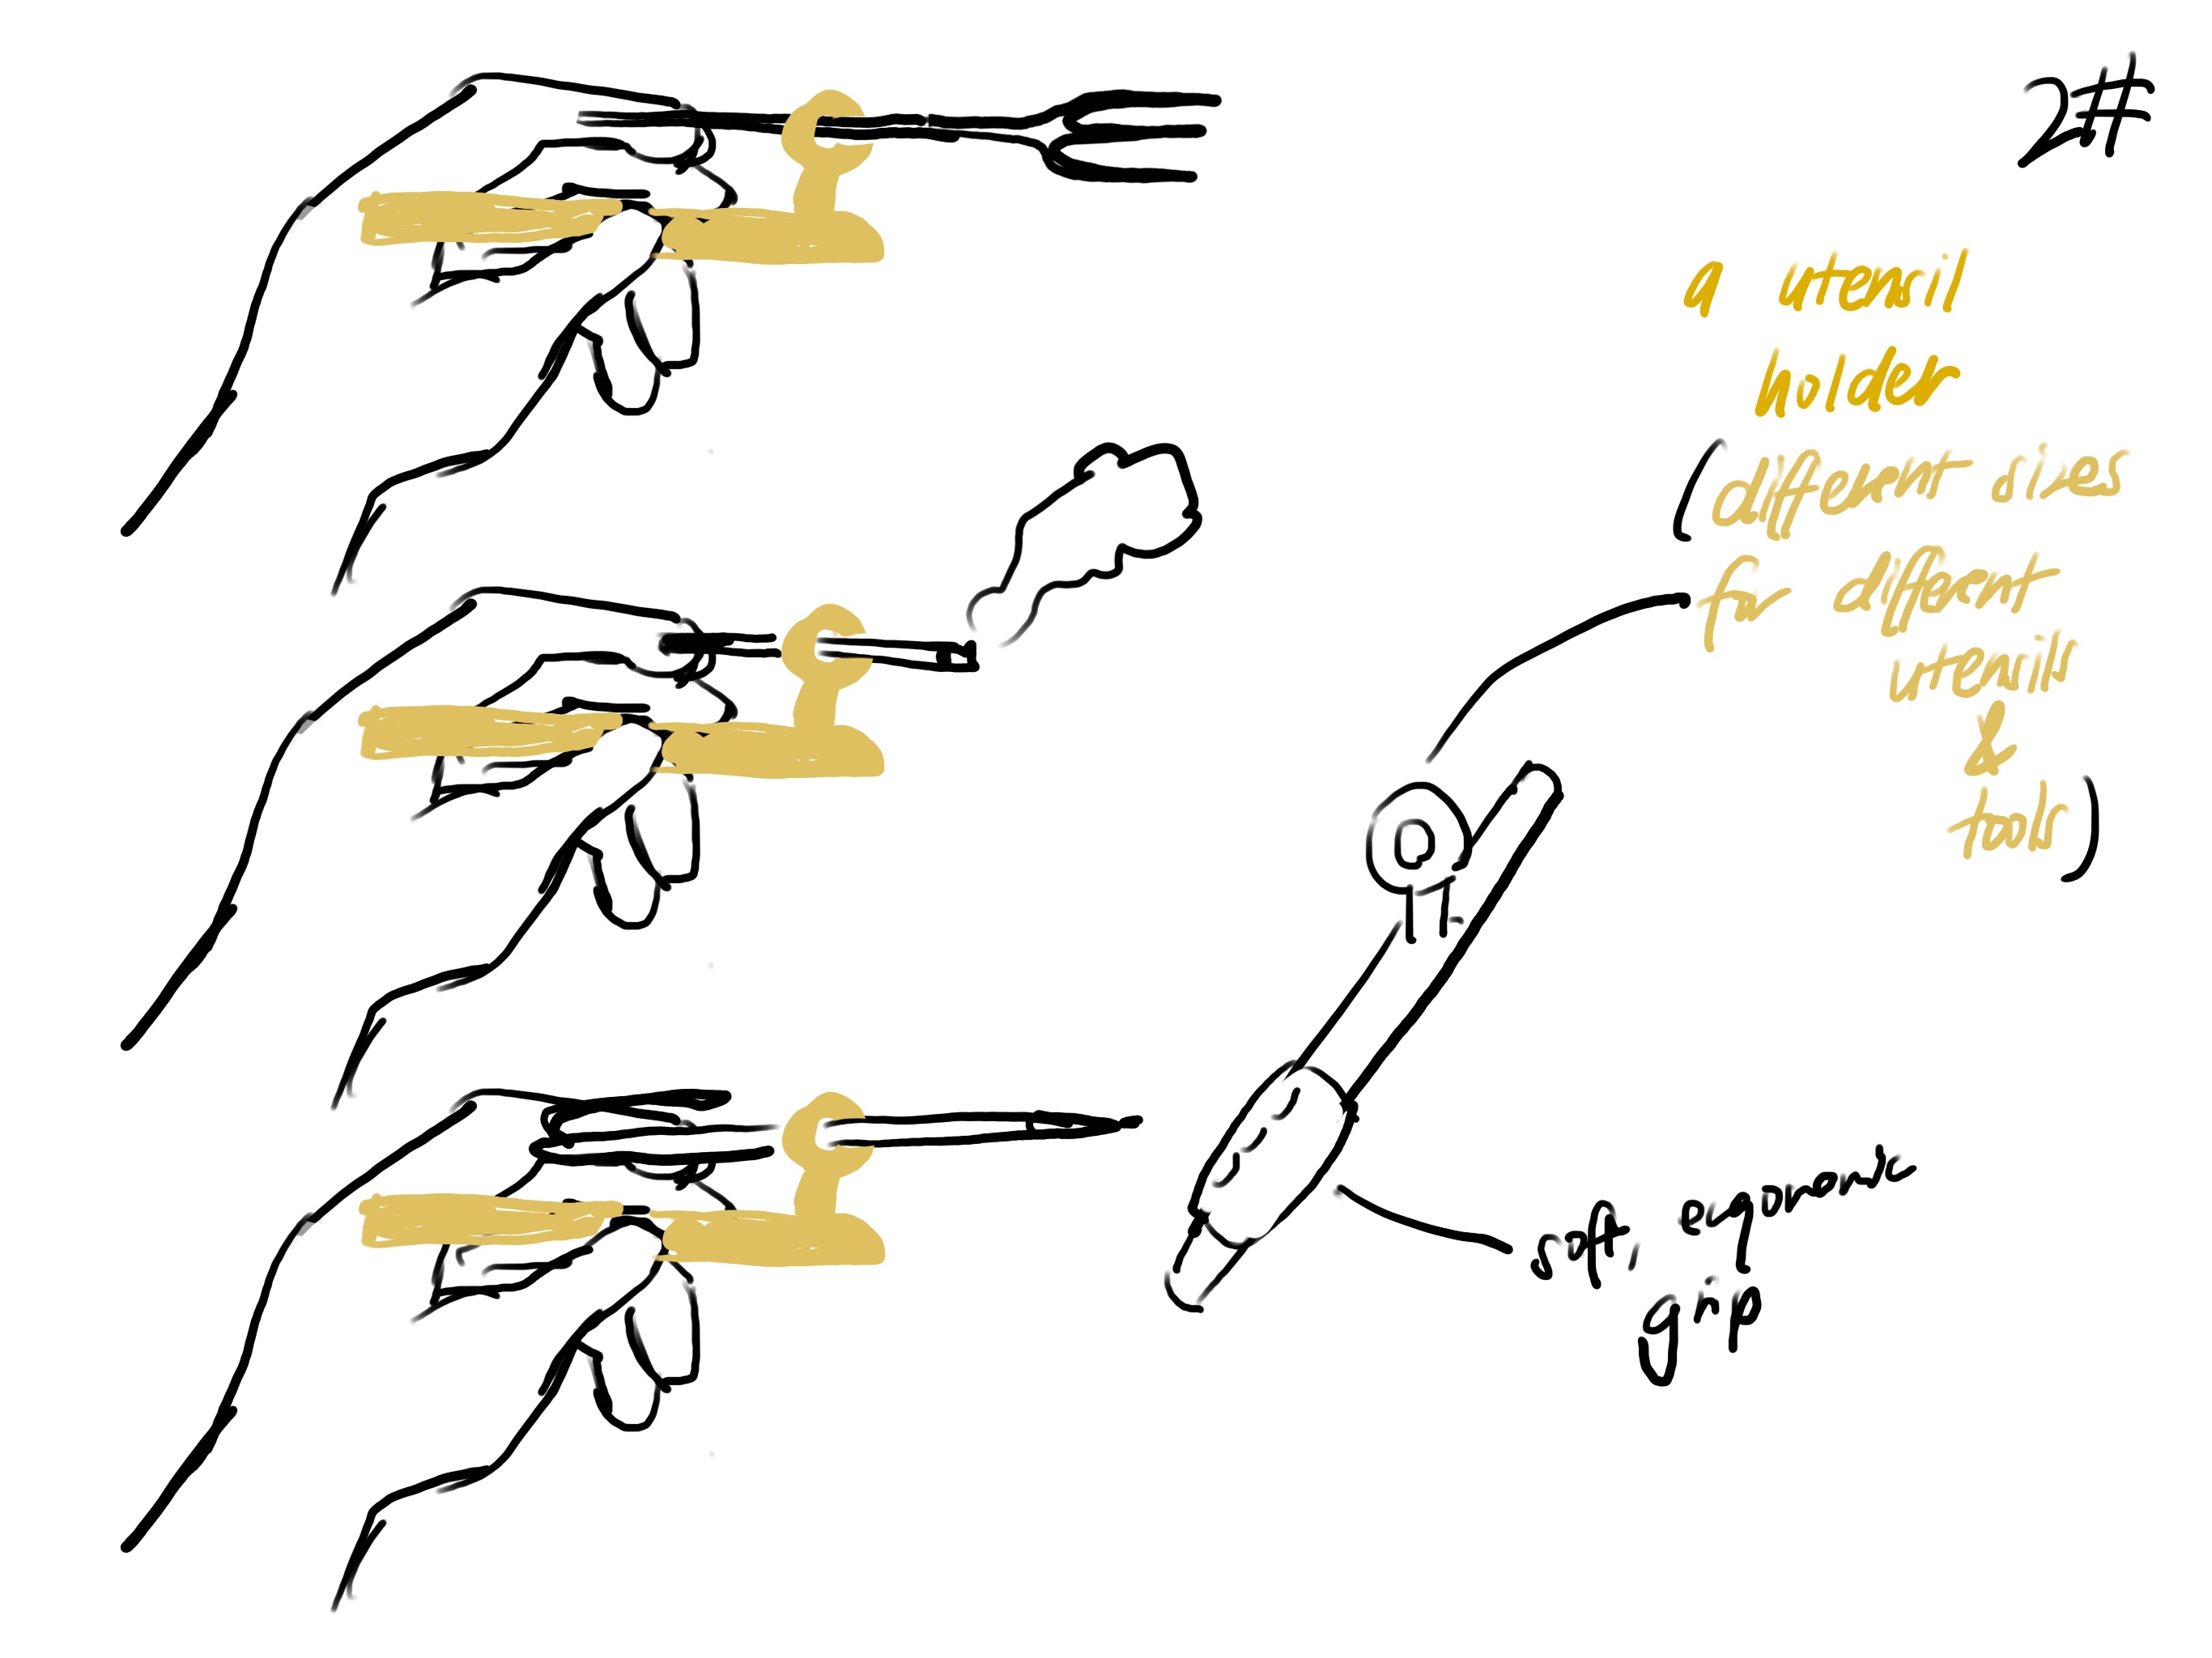 2#
a utensil
holder
(different sizes
for different
utensils
&
tools)
soft, ergonomic
grip